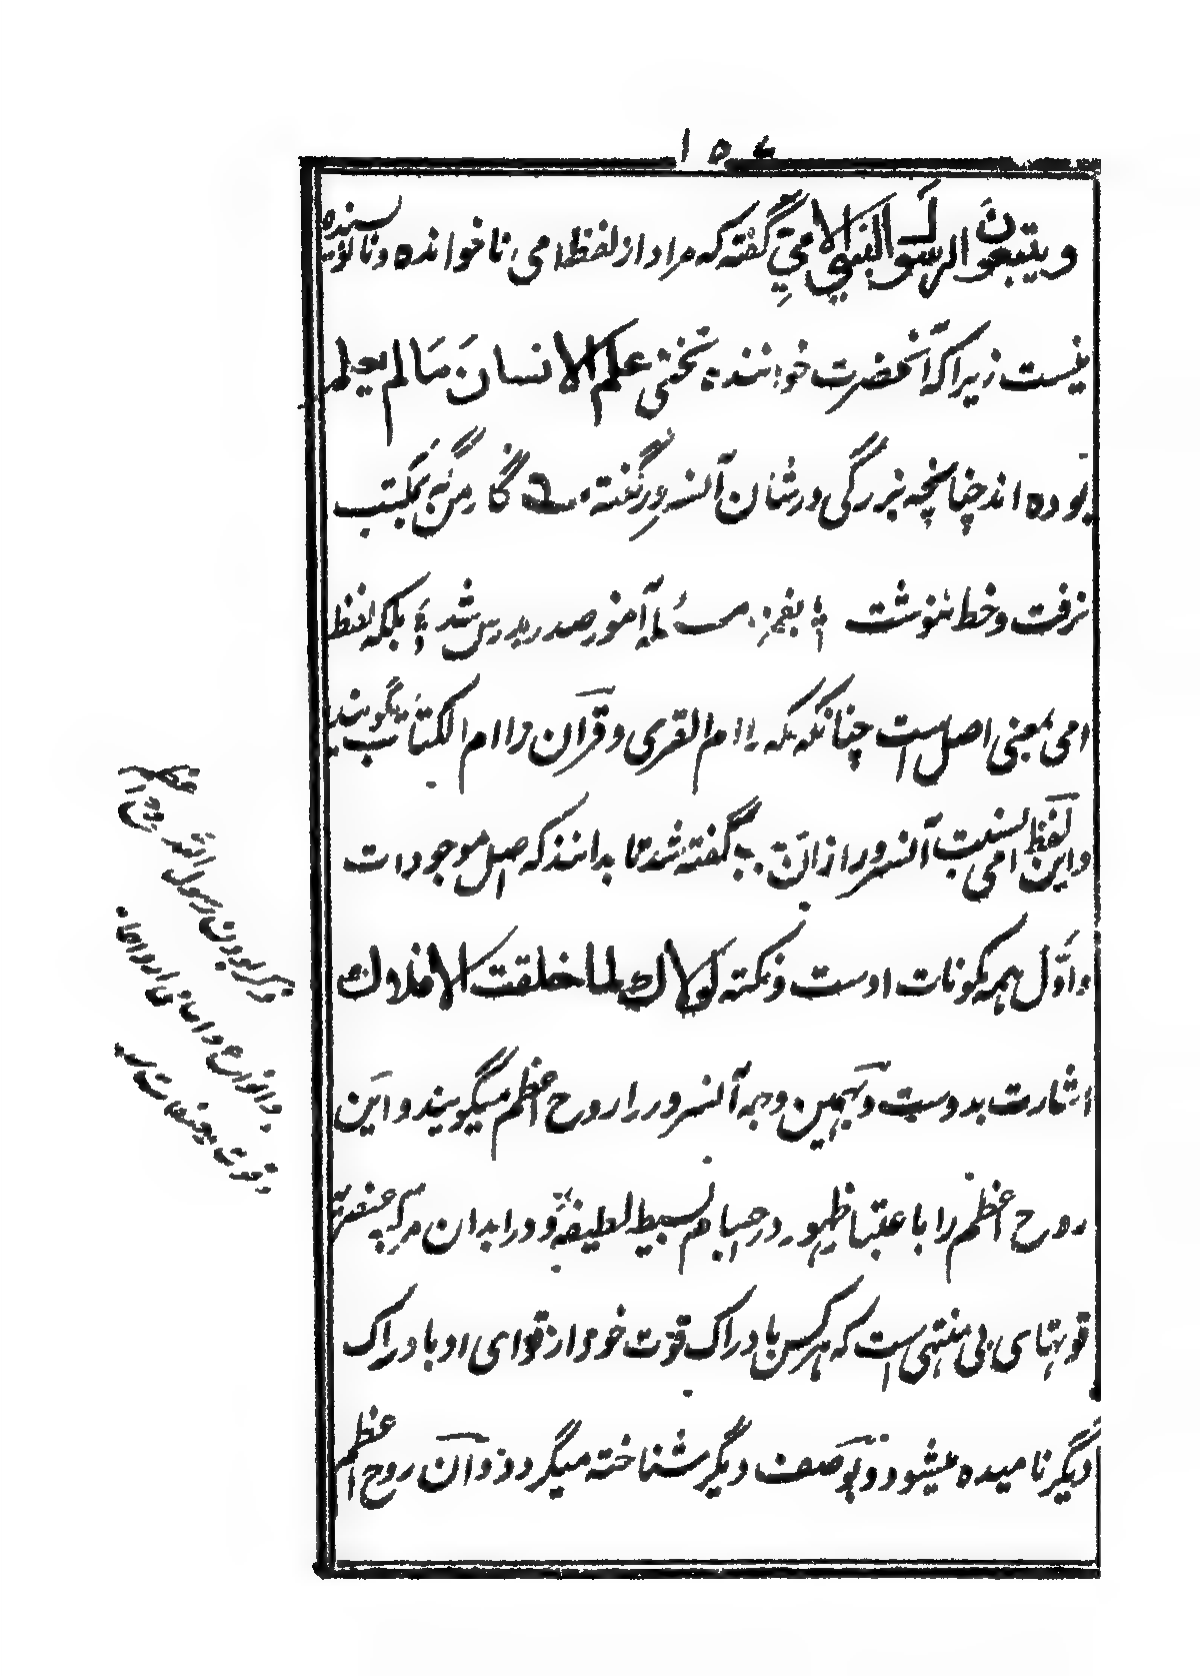 ۱۵۷
ویتبعون الرسول النبی الامی گفته که مراد از لفظ امی نا خوانده و نا نویسنده
نیست زیرا که آنحضرت خواننده تختی علم الانسان مالم یعلم
بوده اند چنانچه بزرگی در شان آنسرور گفته نگار من که بمکتب
نرفت و خط ننوشت بغمزه مسئله آموز صد مدرس شد بلکه لفظ
امی بمعنی اصل است چنانکه مکه را ام القری و قرآن را ام الکتاب میگویند
و این لفظ امی بنسبت آنسرور ازان گفته شد تا بدانند که اصل موجودات
و اول همه مکونات اوست و نکته لولاک لما خلقت الافلاک
اشارت بدوست و بهمین وجه آنسرور را روح اعظم میگویند و این
روح اعظم را باعتبار ظهور در اجسام بسیط لطیفه و در ابدان مرکبه عنصریه
قوتهای بی منتهی است که هر کس بادراک قوت خود از قوای او بادراک
دیگر نامیده میشود و بوصف دیگر شناخته میگردد و آن روح اعظم
ذکر بودن رسول الله روح اعظم
و انواع و اسامی ارواح
و قوت و صفات